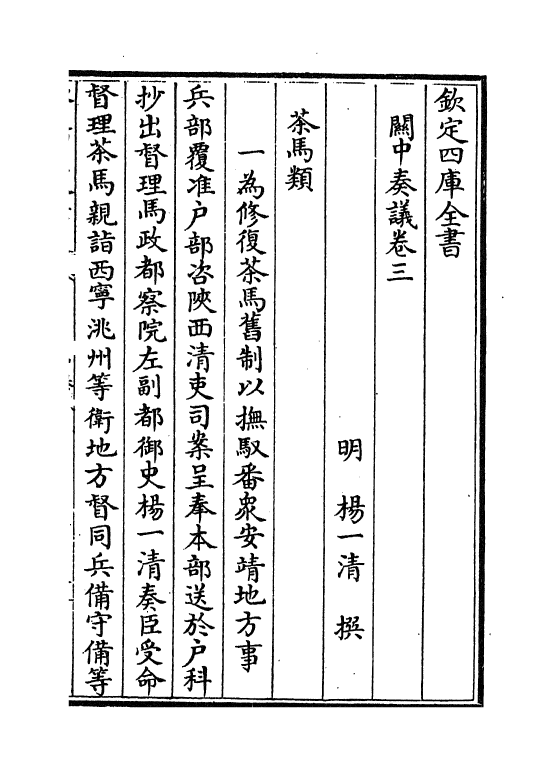 欽定四庫全書
關中奏議卷三
明　楊一清　撰
茶馬類
一為修復茶馬舊制以撫馭番衆安靖地方事
兵部覆准户部咨陜西清吏司案呈奉本部送於户科
抄出督理馬政都察院左副都御史楊一清奏臣受命
督理茶馬親詣西寧洮州等衛地方督同兵備守備等